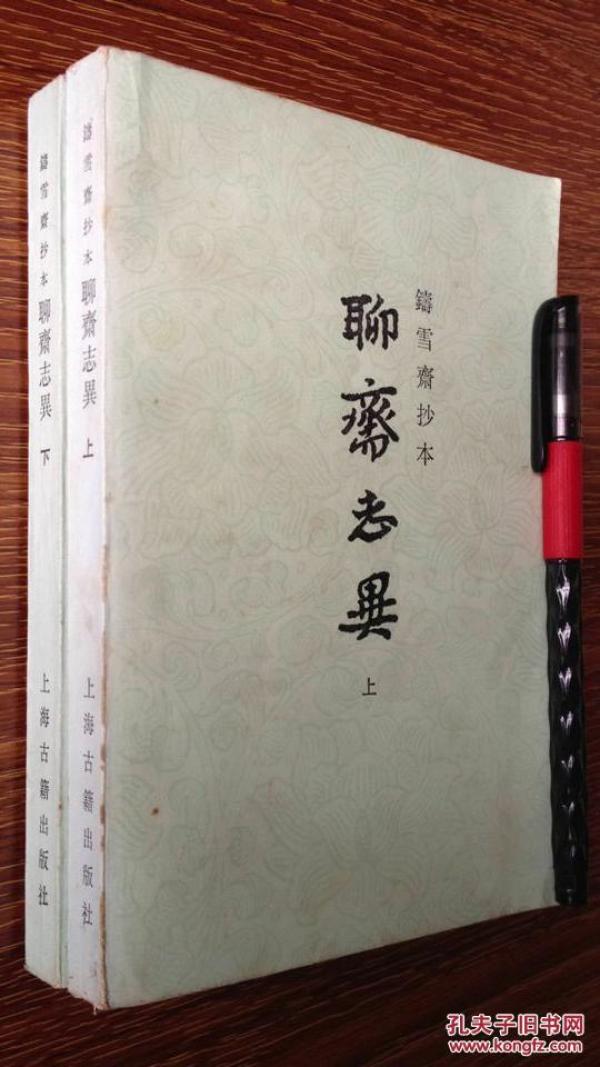 鑄雪齋抄本
聊齋志異
上
鑄雪齋抄本 聊齋志異 上
上海古籍出版社
鑄雪齋抄本 聊齋志異 下
上海古籍出版社
孔夫子旧书网
www.kongfz.com